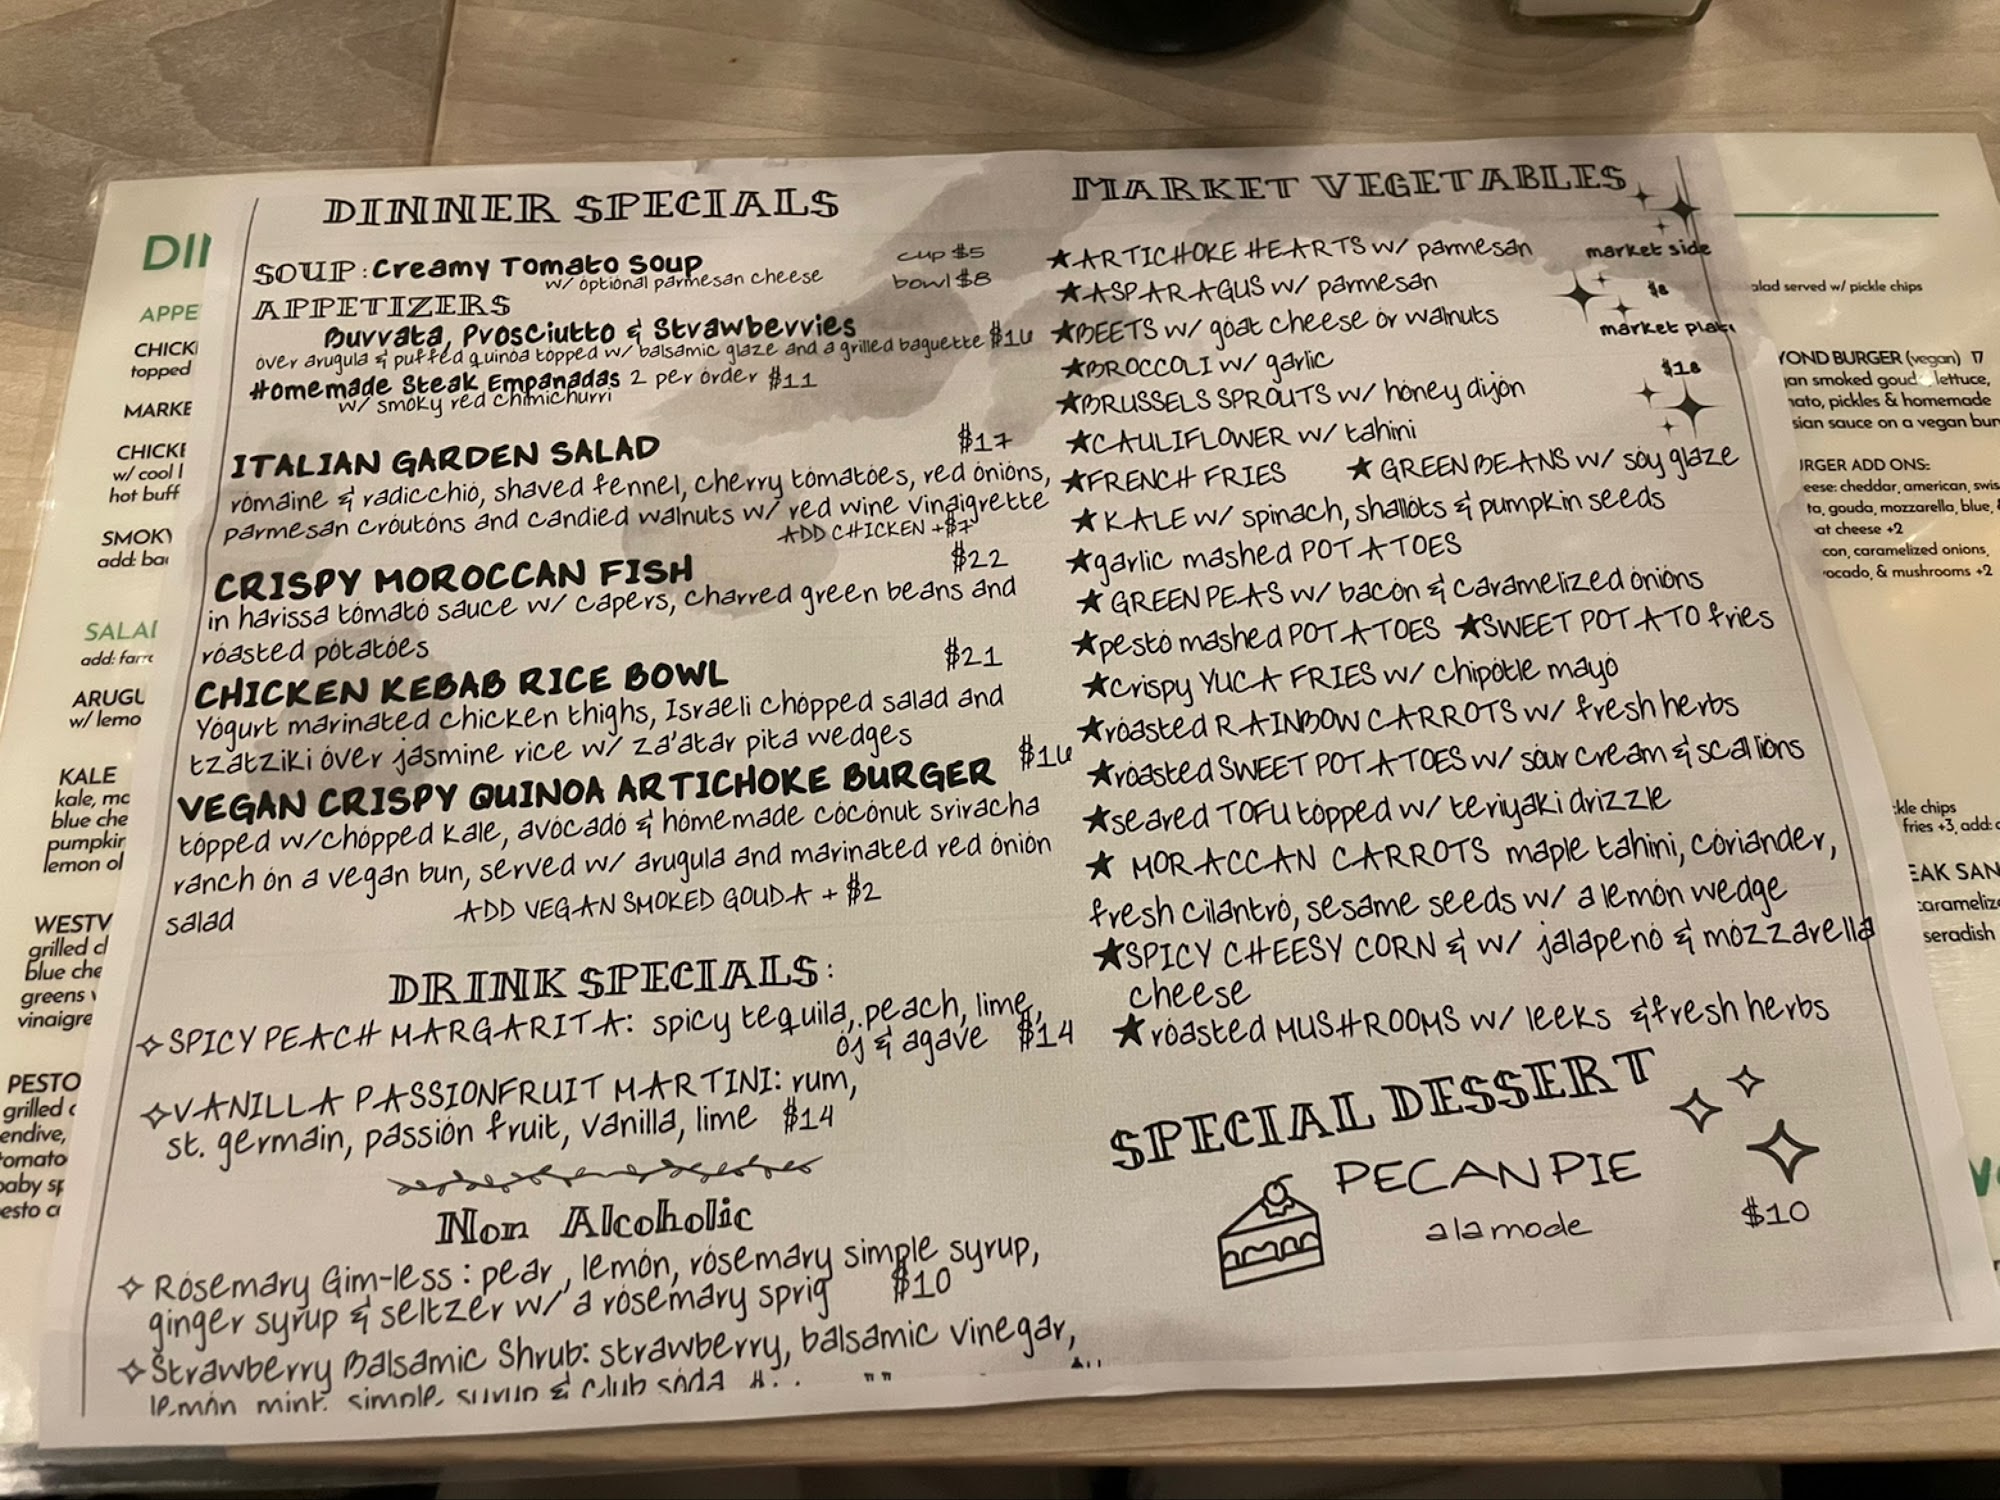 DINNER SPECIALS
SOUP: Creamy Tomato Soup cup $5
w/ optional parmesan cheese bowl $8
APPETIZERS
Burrata, Prosciutto & Strawberries
over arugula & puffed quinoa topped w/ balsamic glaze and a grilled baguette $16
Homemade Steak Empanadas 2 per order $11
w/ smoky red chimichurri
ITALIAN GARDEN SALAD $17
romaine & radicchio, shaved fennel, cherry tomatoes, red onions,
parmesan croutons and candied walnuts w/ red wine vinaigrette
ADD CHICKEN +$7
CRISPY MOROCCAN FISH $22
in harissa tomato sauce w/ capers, charred green beans and
roasted potatoes
CHICKEN KEBAB RICE BOWL $21
Yogurt marinated chicken thighs, Israeli chopped salad and
tzatziki over jasmine rice w/ za'atar pita wedges
VEGAN CRISPY QUINOA ARTICHOKE BURGER $16
topped w/chopped kale, avocado & homemade coconut sriracha
ranch on a vegan bun, served w/ arugula and marinated red onion
salad ADD VEGAN SMOKED GOUDA + $2
DRINK SPECIALS:
SPICY PEACH MARGARITA: spicy tequila, peach, lime,
oj & agave $14
VANILLA PASSIONFRUIT MARTINI: rum,
st. germain, passion fruit, vanilla, lime $14
Non Alcoholic
Rosemary Gim-less: pear, lemon, rosemary simple syrup,
ginger syrup & seltzer w/ a rosemary sprig $10
Strawberry Balsamic Shrub: strawberry, balsamic vinegar,
lemon, mint, simple, syrup & club soda
MARKET VEGETABLES
★ARTICHOKE HEARTS w/ parmesan
★ASPARAGUS w/ parmesan
★BEETS w/ goat cheese or walnuts
★BROCCOLI w/ garlic
★BRUSSELS SPROUTS w/ honey dijon
★CAULIFLOWER w/ tahini
★FRENCH FRIES ★GREEN BEANS w/ soy glaze
★KALE w/ spinach, shallots & pumpkin seeds
★garlic mashed POTATOES
★GREEN PEAS w/ bacon & caramelized onions
★pesto mashed POTATOES ★SWEET POTATO fries
★crispy YUCA FRIES w/ chipotle mayo
★roasted RAINBOW CARROTS w/ fresh herbs
★roasted SWEET POTATOES w/ sour cream & scallions
★seared TOFU topped w/ teriyaki drizzle
★MORACCAN CARROTS maple tahini, coriander,
fresh cilantro, sesame seeds w/ a lemon wedge
★SPICY CHEESY CORN & w/ jalapeno & mozzarella
cheese
★roasted MUSHROOMS w/ leeks & fresh herbs
market side
$8
market plate
$18
SPECIAL DESSERT
PECAN PIE
a la mode $10
DI
APPE
CHICK
topped
MARKE
CHICKE
w/ cool
hot buff
SMOKY
add: ba
SALA
add: farr
ARUGU
w/ lemo
KALE
kale, mo
blue che
pumpkin
lemon ol
WESTV
grilled c
blue che
greens
vinaigre
PESTO
grilled
endive,
tomato
baby sp
esto c
alad served w/ pickle chips
YOND BURGER (vegan) 17
an smoked gouda, lettuce,
ato, pickles & homemade
sian sauce on a vegan bun
URGER ADD ONS:
eese: cheddar, american, swis
ta, gouda, mozzarella, blue,
at cheese +2
con, caramelized onions,
vocado, & mushrooms +2
kle chips
fries +3, add:
EAK SAN
caramelize
seradish